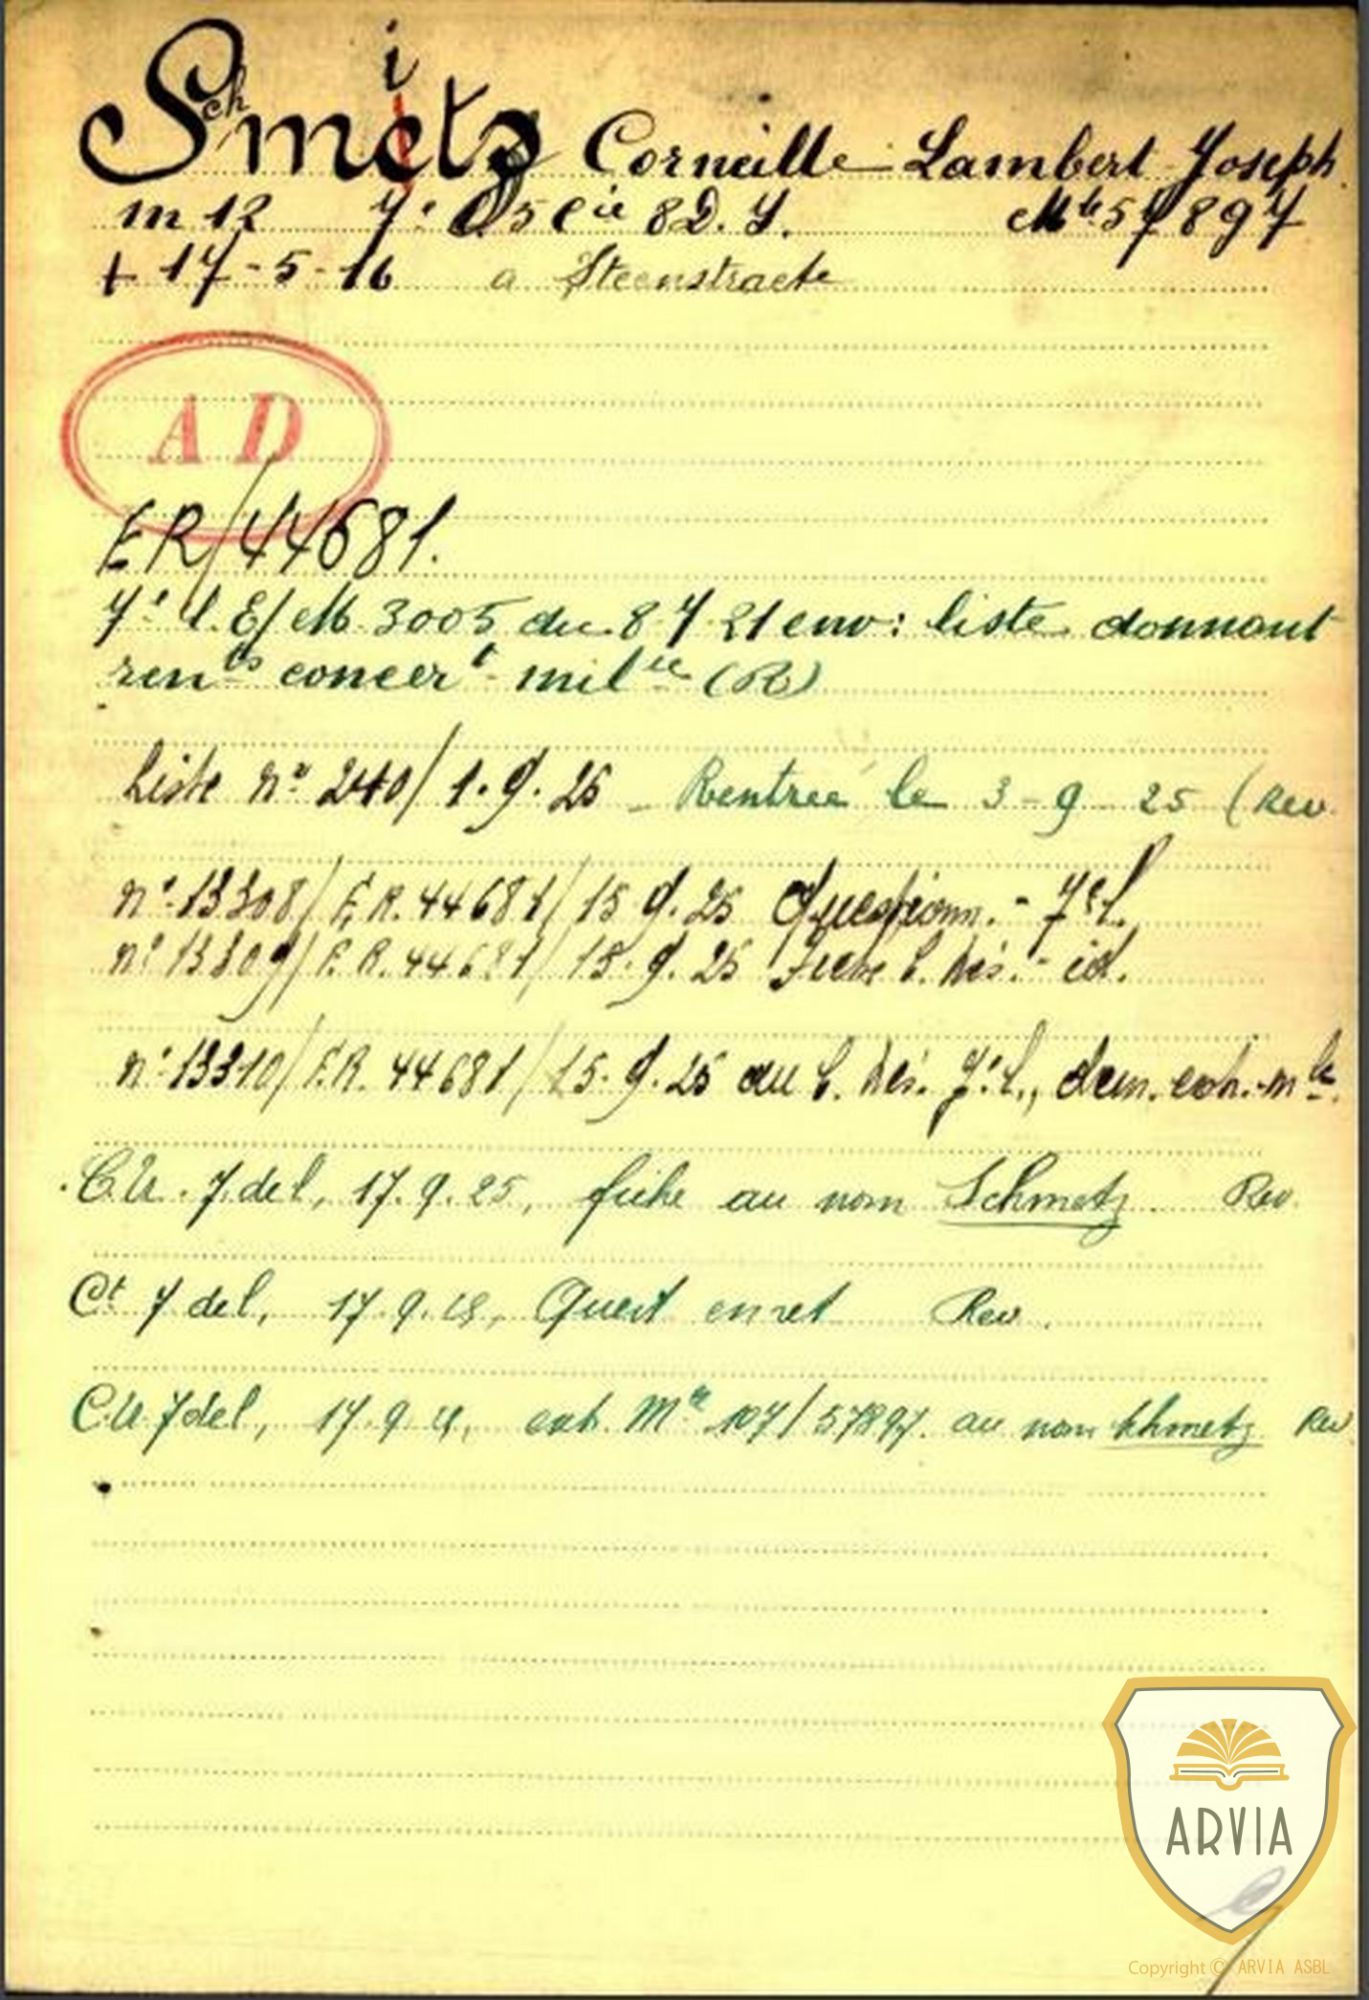 Schmitz Corneille Lambert Joseph
m 12 7e 5 Cie 8 D. Y. Mle 57897
+ 17-5-16 a Steenstraete
A D
ER/44681.
7e l. E/M 3005 du 8 7 21 env: liste donnant
rents concert milre (R)
Liste no 240/1.9.25 - Rentrée le 3-9-25 (Rev
no 13308/E.R. 44681/15.9.25 Questionn. - 7e l.
no 13309/E.R. 44681/15.9.25 Fiche C. Més. - id.
no 13310/E.R. 44681/15.9.25 au C. Més. 7e l., dem. ext. mle.
7 de l, 17.9.25, fiche au nom Schmetz Rev.
Ct 7 de l, 17.9.25, Quest en ret Rev.
7 de l, 17.9.25, ext. Mle 107/57897 au nom Schmetz Rev
ARVIA
Copyright © ARVIA ASBL